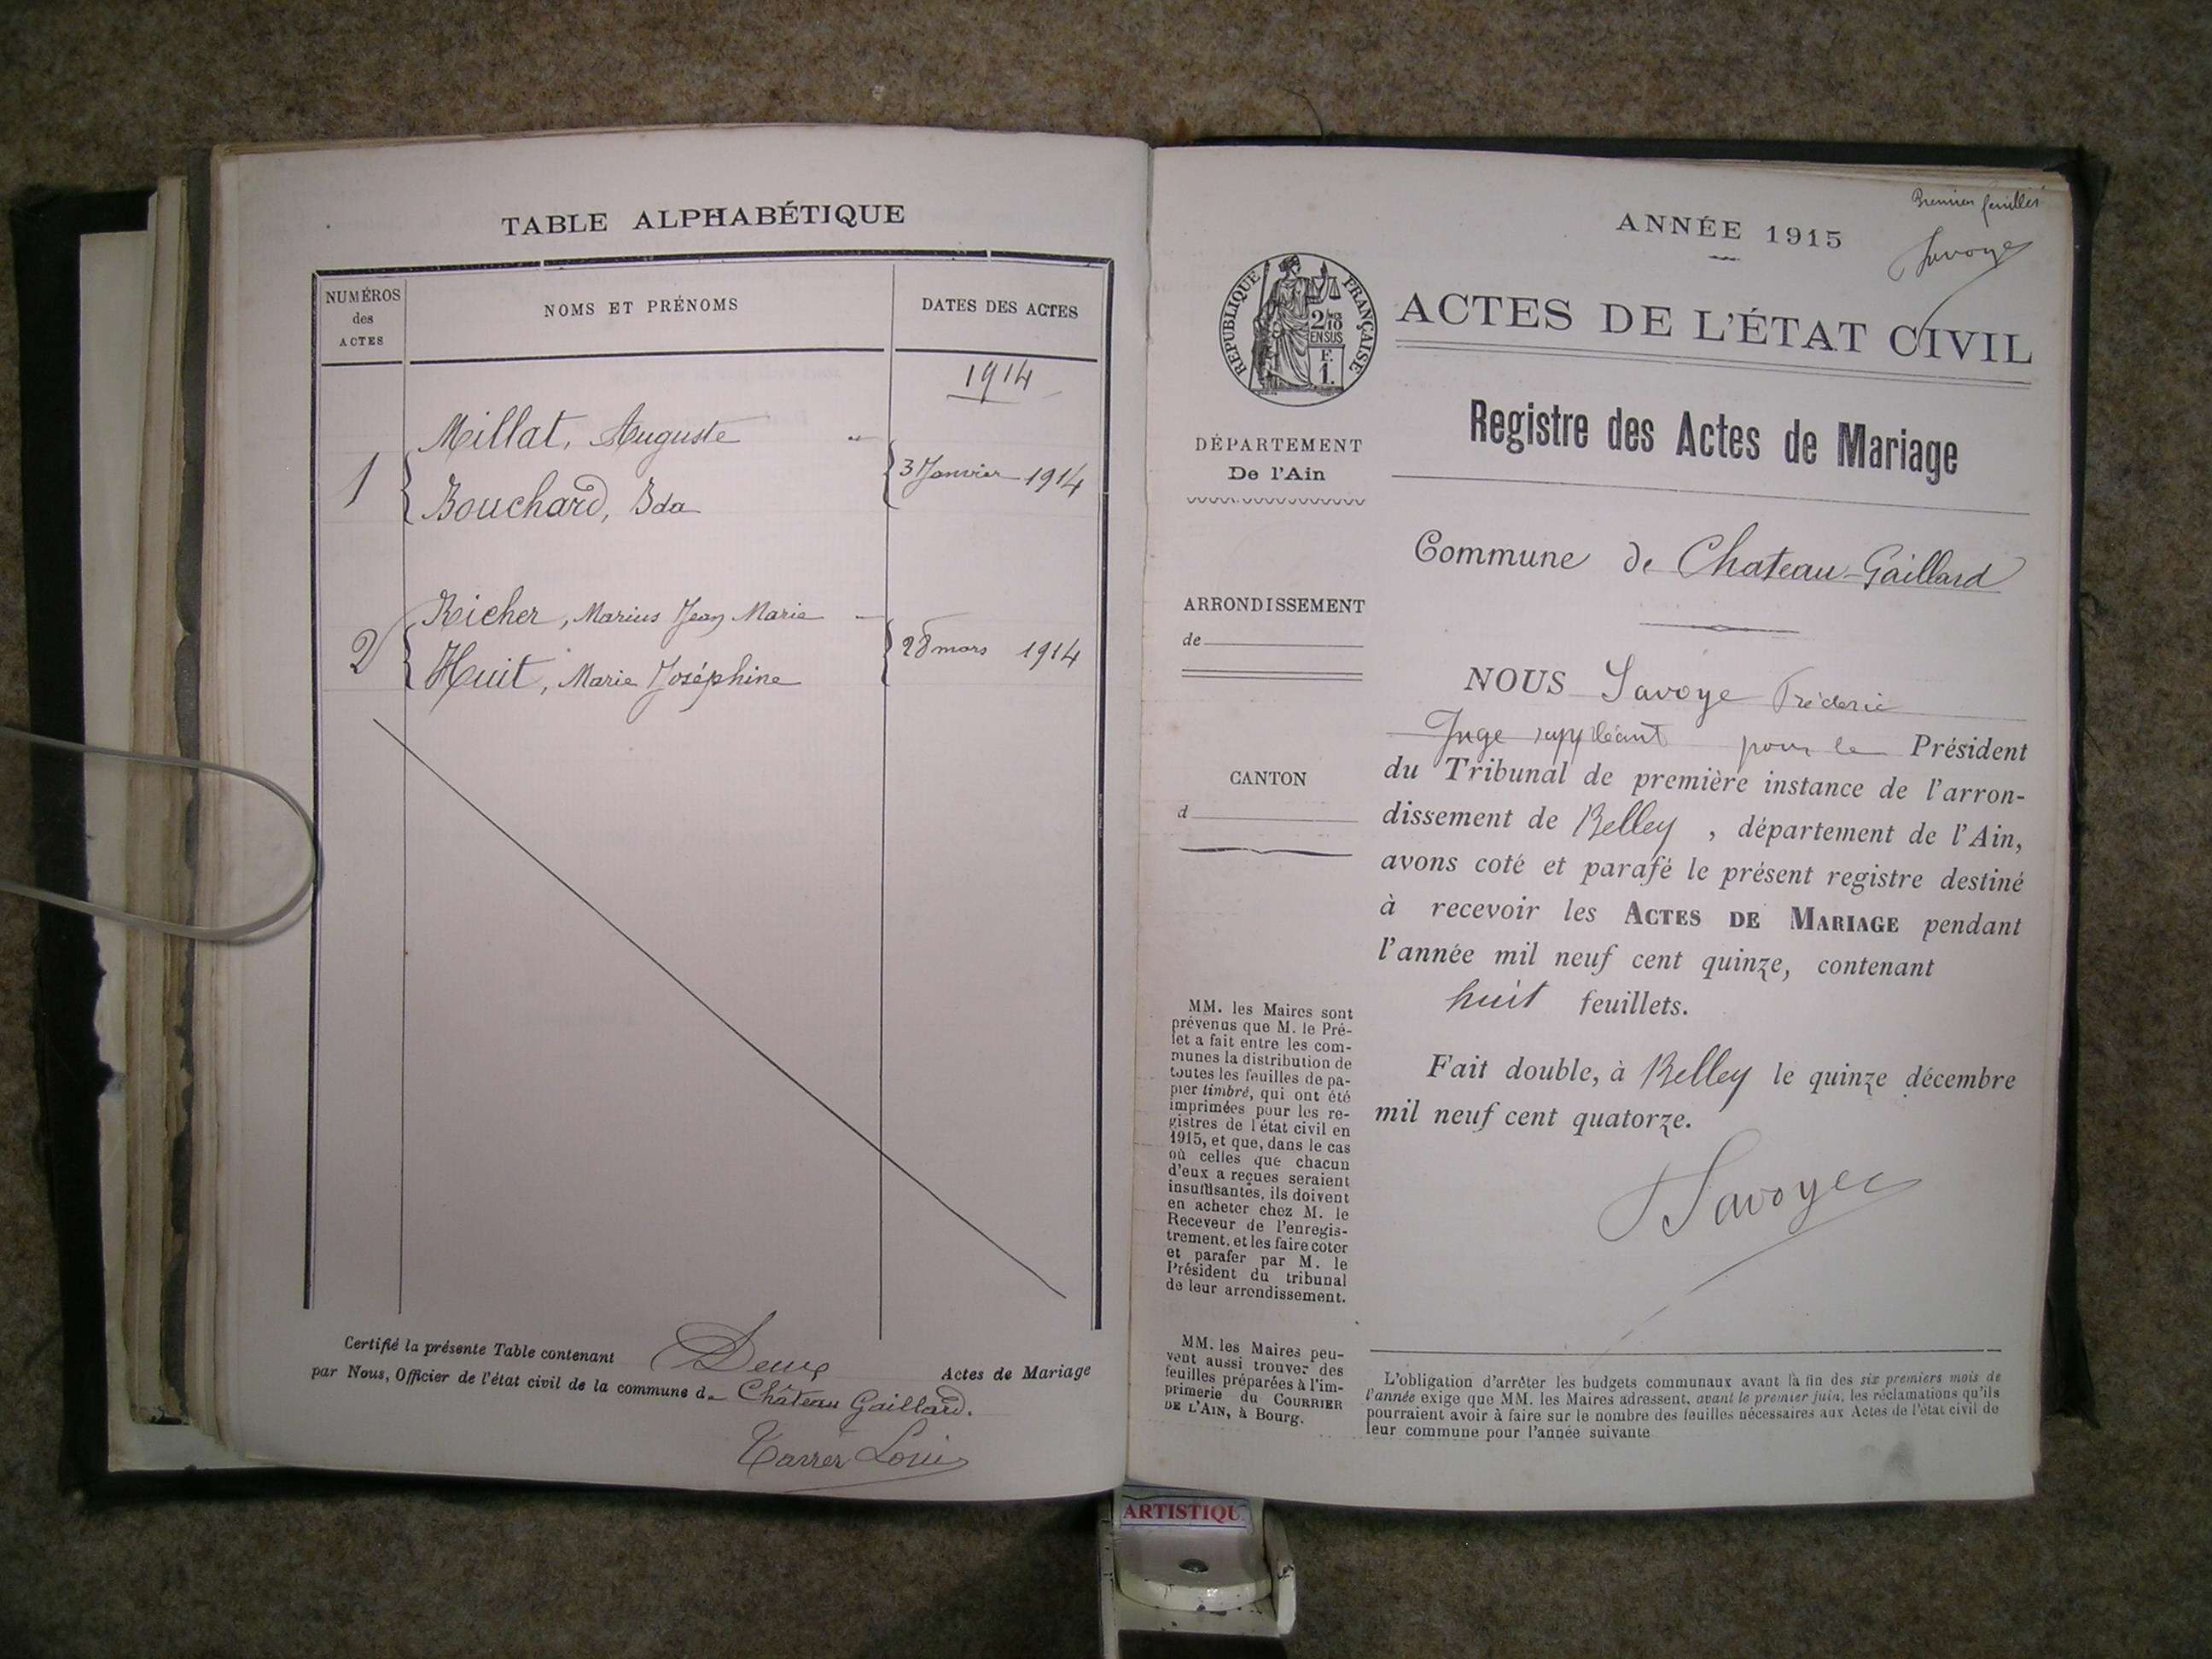 TABLE ALPHABÉTIQUE
NUMÉROS
des
ACTES
NOMS ET PRÉNOMS
DATES DES ACTES
1914
1
Millat, Auguste
Bouchard, Ida
3 Janvier 1914
2
Richer, Marius Jean Marie
Huit, Marie Joséphine
28 mars 1914
Certifié la présente Table contenant Deux Actes de Mariage
par Nous, Officier de l'état civil de la commune de Château Gaillard.
Louis
Premier feuillet
Savoye
ANNÉE 1915
RÉPUBLIQUE FRANÇAISE
2/10
EN SUS
F.
1.
ACTES DE L'ÉTAT CIVIL
Registre des Actes de Mariage
DÉPARTEMENT
De l'Ain
Commune de Chateau-Gaillard
ARRONDISSEMENT
de
CANTON
d
NOUS Savoye Fréderic
Juge suppléant pour le Président
du Tribunal de première instance de l'arron-
dissement de Belley, département de l'Ain,
avons coté et parafé le présent registre destiné
à recevoir les ACTES DE MARIAGE pendant
l'année mil neuf cent quinze, contenant
huit feuillets.
Fait double, à Belley le quinze décembre
mil neuf cent quatorze.
Savoye
MM. les Maires sont
prévenus que M. le Pré-
fet a fait entre les com-
munes la distribution de
toutes les feuilles de pa-
pier timbré, qui ont été
imprimées pour les re-
gistres de l'état civil en
1915, et que, dans le cas
où celles que chacun
d'eux a reçues seraient
insuffisantes, ils doivent
en acheter chez M. le
Receveur de l'enregis-
trement, et les faire coter
et parafer par M. le
Président du tribunal
de leur arrondissement.
MM. les Maires peu-
vent aussi trouver des
feuilles préparées à l'im-
primerie du COURRIER
DE L'AIN, à Bourg.
L'obligation d'arrêter les budgets communaux avant la fin des six premiers mois de
l'année exige que MM. les Maires adressent, avant le premier juin, les réclamations qu'ils
pourraient avoir à faire sur le nombre des feuilles nécessaires aux Actes de l'état civil de
leur commune pour l'année suivante
ARTISTIQU